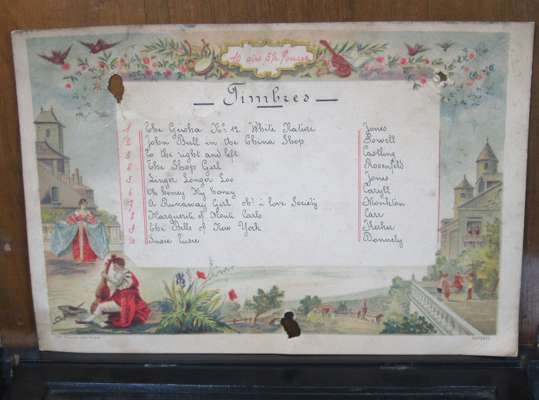 10 airs 5¼ Pouces
Timbres
1 The Geisha No. 12. White Nature Jones
2 John Bull in the China Shop Lowell
3 To the right and left Castling
4 The Shop Girl Rosenfeld
5 Linger Longer Loo Jones
6 Oh honey My honey Caryll
7 A Runaway Girl No. I love Society Monckton
8 Marguerite of Monte Carlo Carr
9 The Bells of New York Kerker
10 Susie Tusie Donnelly